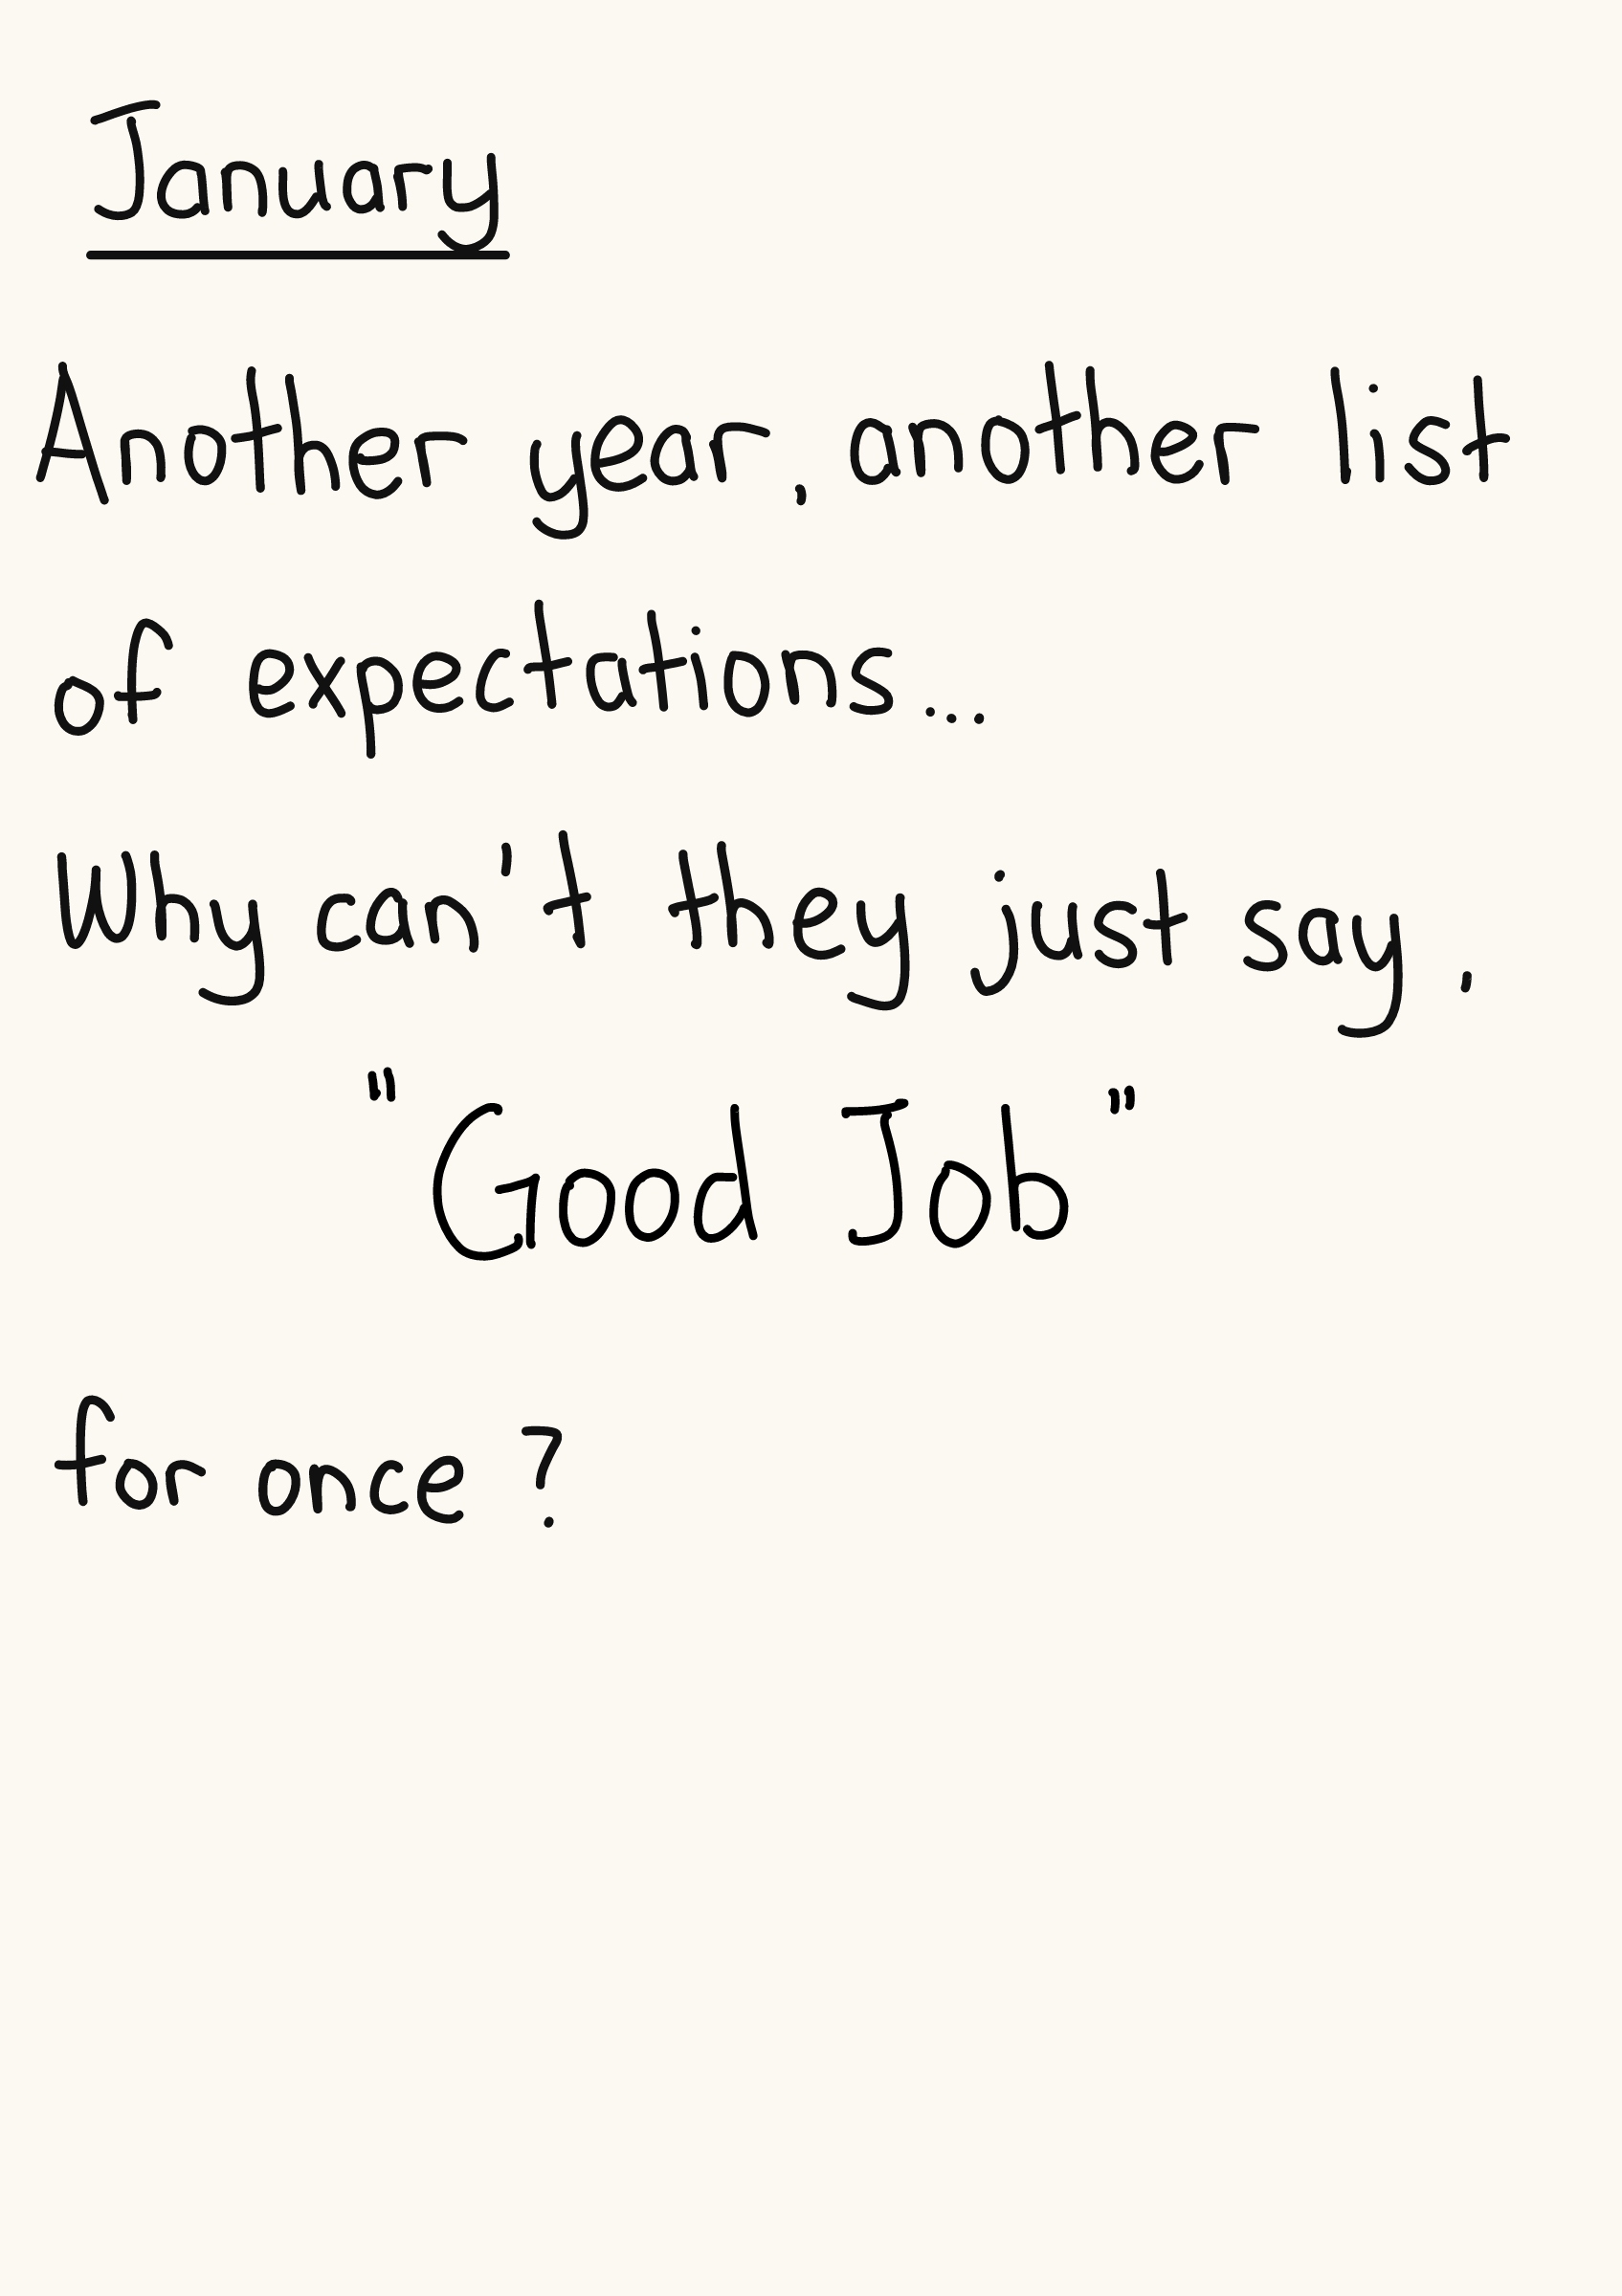 January
Another year, another list
of expectations...
Why can't they just say,
"Good Job"
for once?